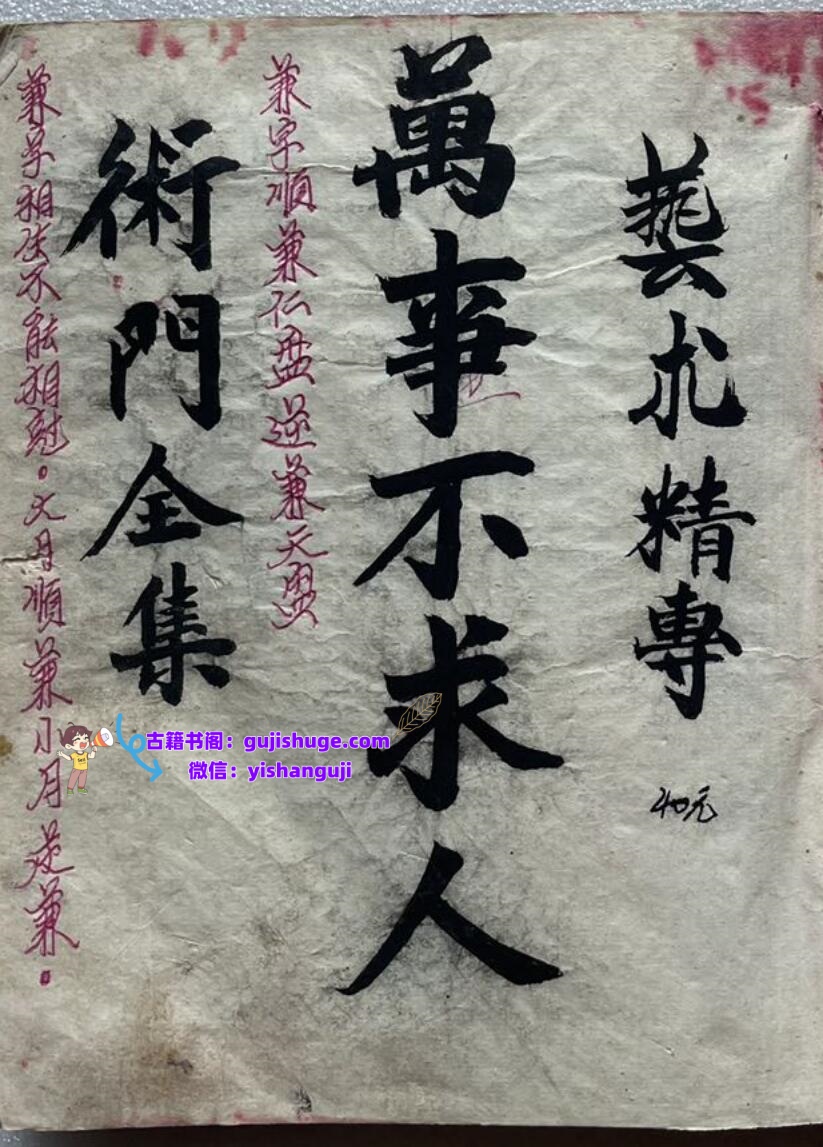 藝术精專
40元
萬事不求人
兼字順兼仁盘逆兼天盤
術門全集
兼字相生不能相尅。大月順兼小月逆兼。
古籍书阁：gujishuge.com
微信：yishanguji